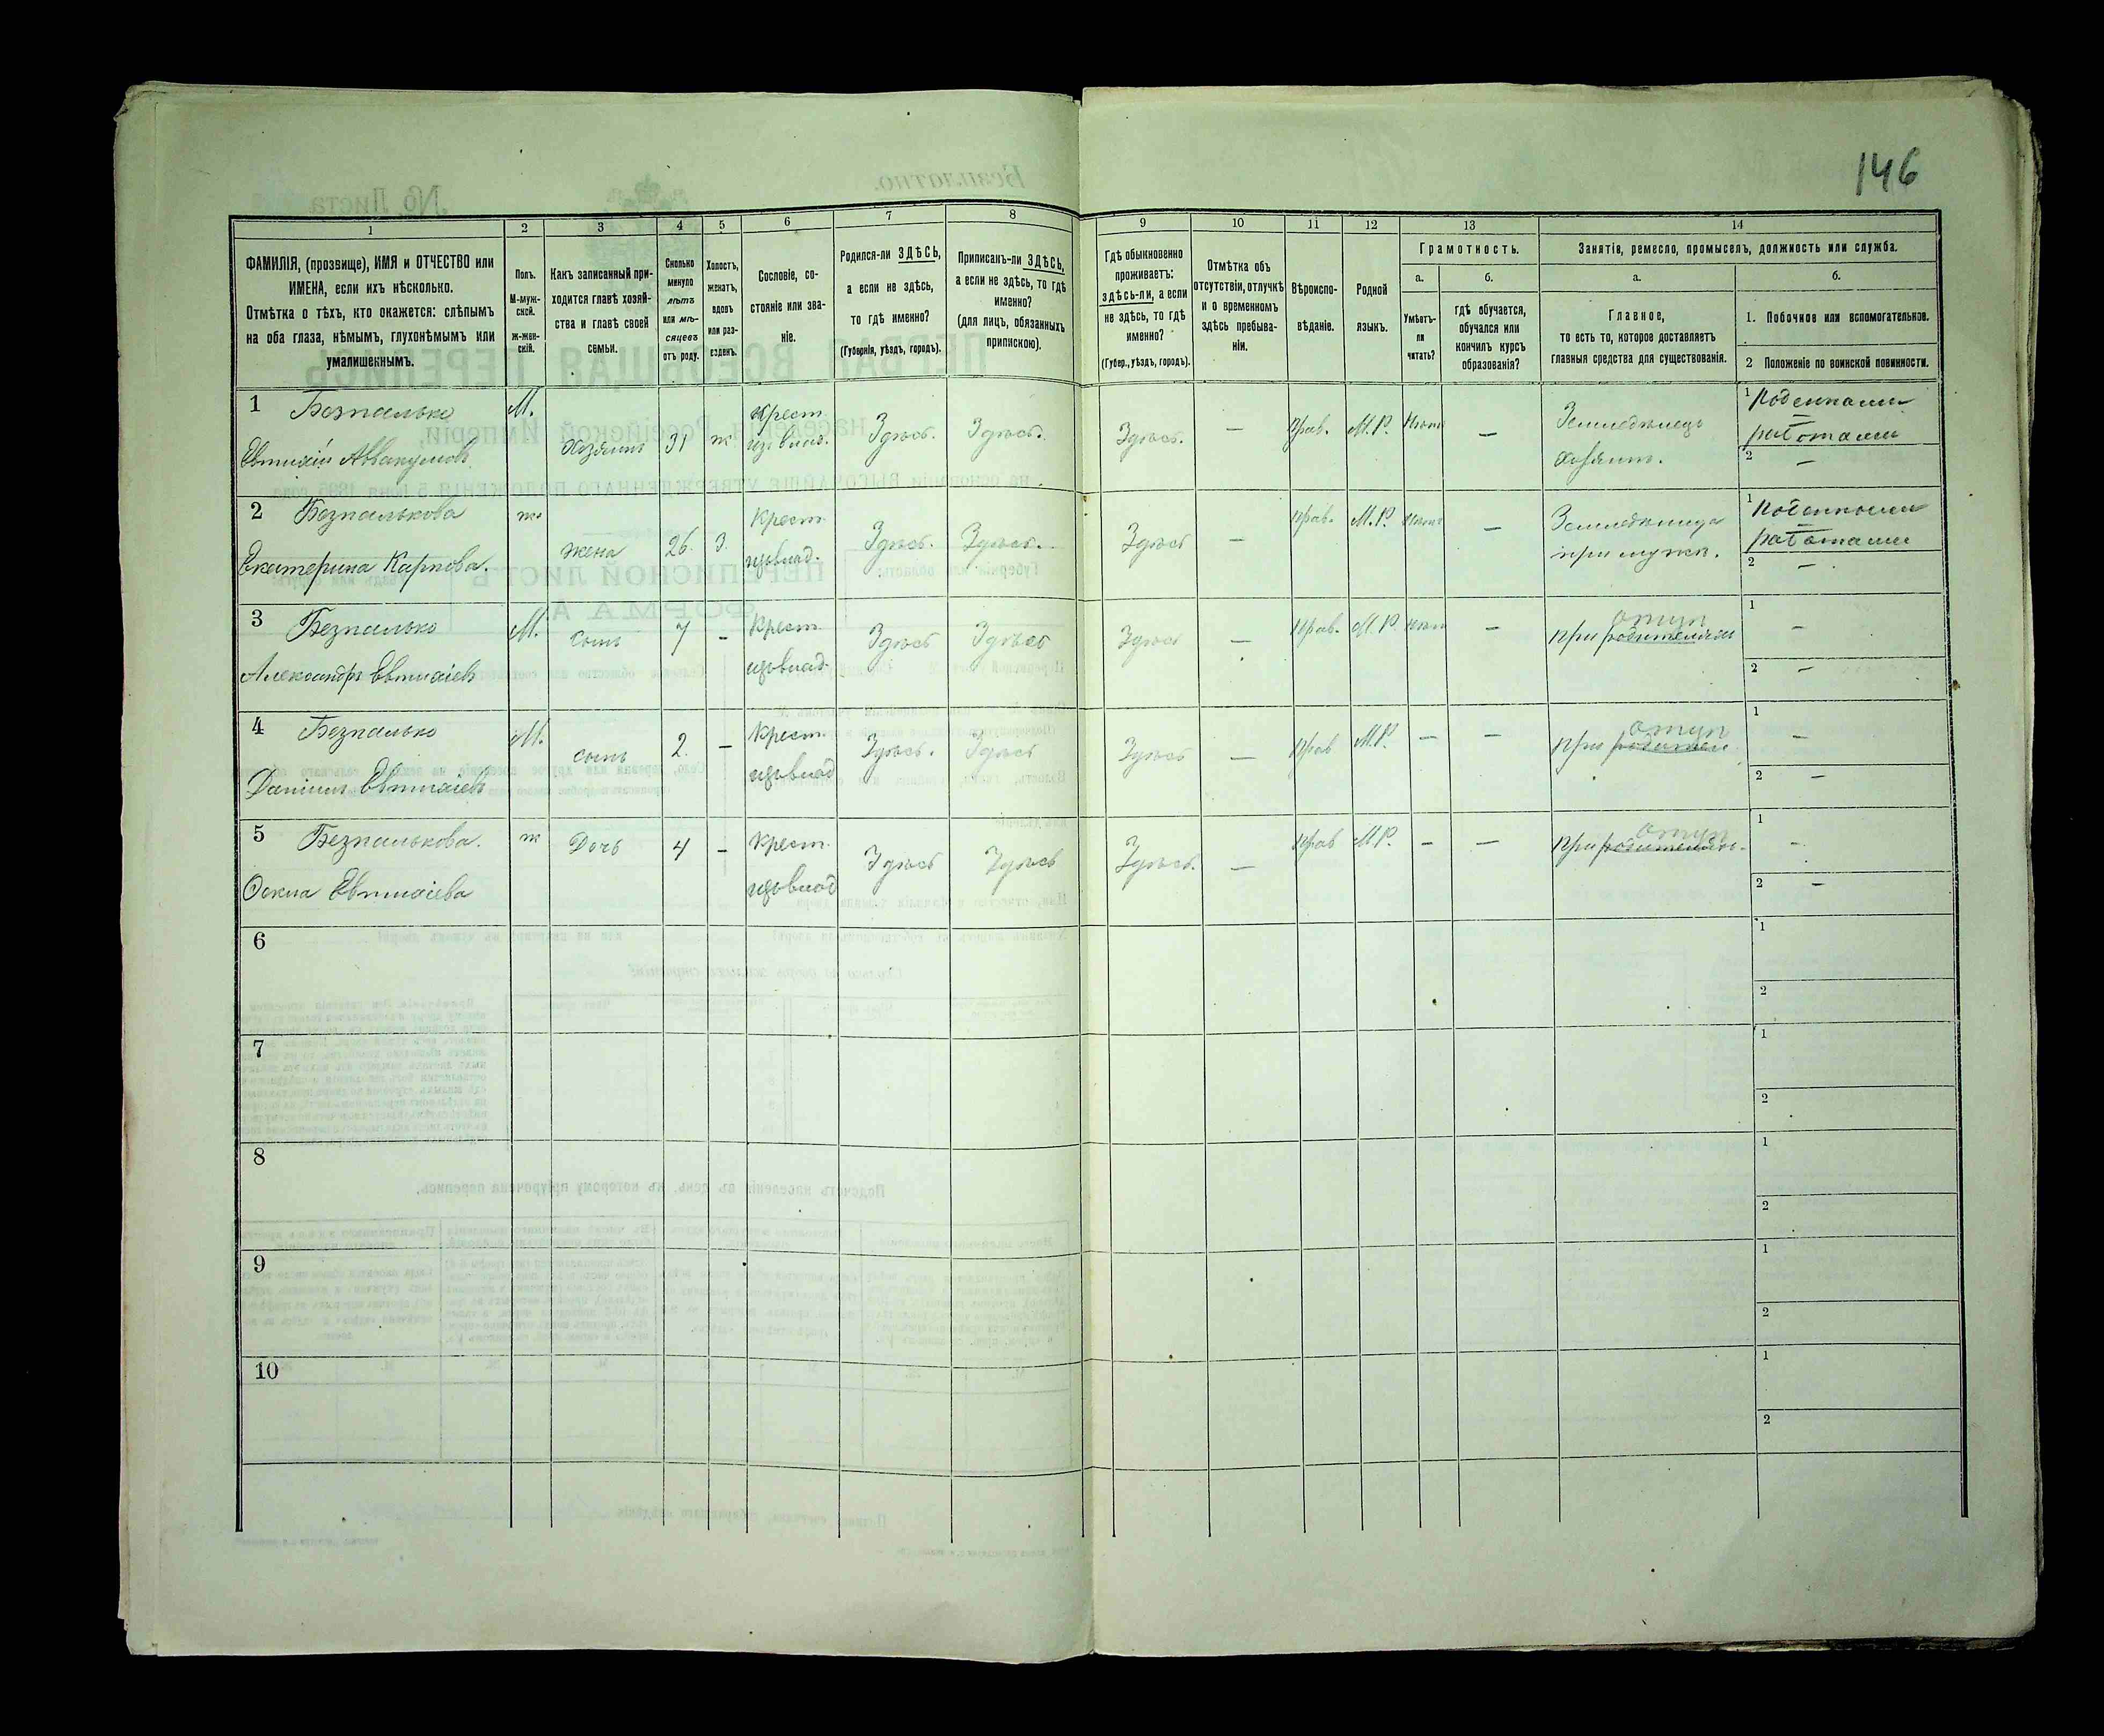 146
1
2
3
4
5
6
7
8
9
10
11
12
13
14
ФАМИЛІЯ, (прозвище), ИМЯ и ОТЧЕСТВО или
ИМЕНА, если ихъ нѣсколько.
Отмѣтка о тѣхъ, кто окажется: слѣпымъ
на оба глаза, нѣмымъ, глухонѣмымъ или
умалишеннымъ.
Полъ.
М-муж-
ской.
Ж-жен-
скій.
Какъ записанный при-
ходится главѣ хозяй-
ства и главѣ своей
семьи.
Сколько
минуло
лѣтъ
или мѣ-
сяцевъ
отъ роду.
Холостъ,
женатъ,
вдовъ
или раз-
веденъ.
Сословіе, со-
стояніе или зва-
ніе.
Родился-ли ЗДѢСЬ,
а если не здѣсь,
то гдѣ именно?
(Губернія, уѣздъ, городъ).
Приписанъ-ли ЗДѢСЬ,
а если не здѣсь, то гдѣ
именно?
(для лицъ, обязанныхъ
припискою).
Гдѣ обыкновенно
проживаетъ:
здѣсь-ли, а если
не здѣсь, то гдѣ
именно?
(Губер., уѣздъ, городъ).
Отмѣтка объ
отсутствіи, отлучкѣ
и о временномъ
здѣсь пребыва-
ніи.
Вѣроиспо-
вѣданіе.
Родной
языкъ.
Грамотность.
а.
б.
Умѣетъ-
ли
читать?
гдѣ обучается,
обучался или
кончилъ курсъ
образованія?
Занятія, ремесло, промыселъ, должность или служба.
а.
б.
Главное,
то есть то, которое доставляетъ
главныя средства для существованія.
1. Побочное или вспомогательное.
2 Положеніе по воинской повинности.
1 Безпалько М. Хозяинъ 31 ж Крест. Здѣсь. Здѣсь. Здѣсь. — Прав. М.Р. Нѣтъ — Земледѣлецъ 1 Поденными
Евтихій Аввакумовъ. из влад. хозяинъ. работами
2 —
2 Безпалькова ж. жена 26. З. Крест. Здѣсь. Здѣсь. Здѣсь — Прав. М.Р. Нѣтъ — Земледѣлица 1 Поденными
Екатерина Карпова. изъ влад. при мужѣ. работами
2 —
3 Безпалько М. сынъ 7 — Крест. Здѣсь Здѣсь Здѣсь — Прав. М.Р. Нѣтъ — при родителяхъ 1 —
Александръ Евтихіевъ изъ влад. отцѣ 2 —
4 Безпалько М. сынъ 2. — Крест. Здѣсь. Здѣсь Здѣсь — Прав М.Р. — — при родител. 1 —
Даніилъ Евтихіевъ изъ влад отцѣ 2 —
5 Безпалькова. ж Дочь 4 — Крест. Здѣсь Здѣсь Здѣсь. — Прав М.Р. — — при родителяхъ. 1 —
Евтихіева изъ влад отцѣ 2 —
6
1
2
7
1
2
8
1
2
9
1
2
10
1
2